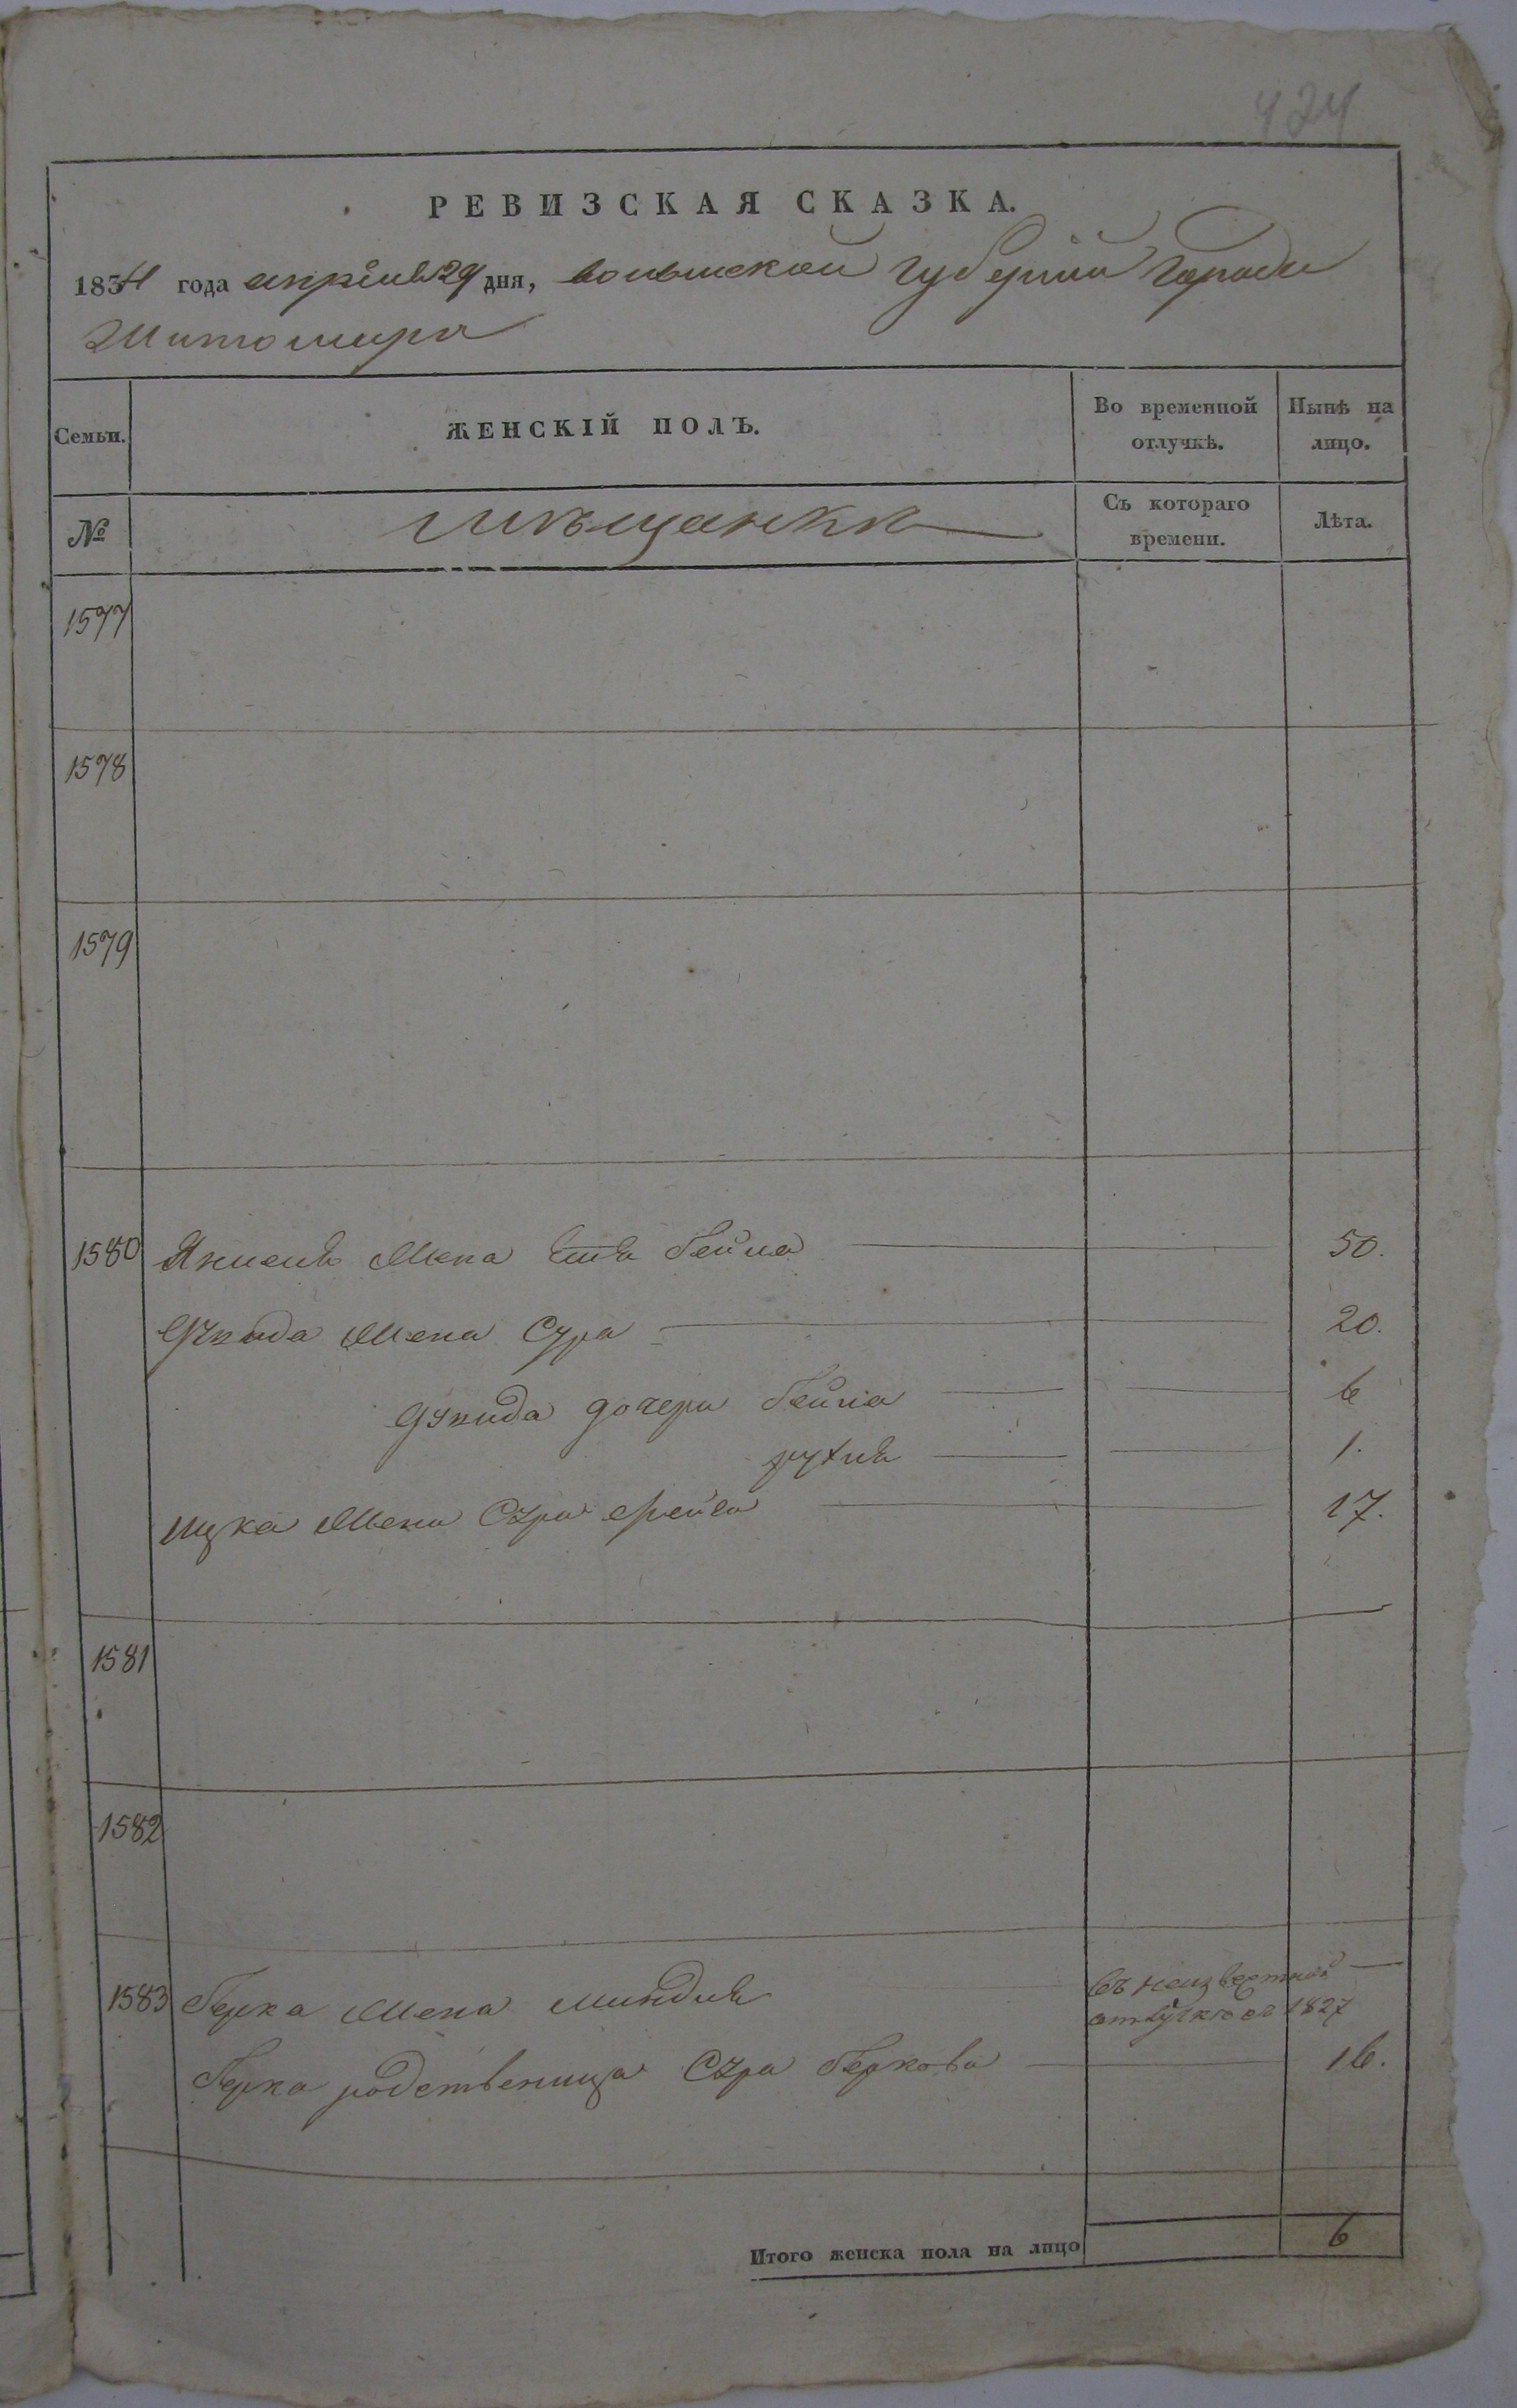 424
РЕВИЗСКАЯ СКАЗКА.
1834 года апреля 29 дня, волынской губернии города
Житомира
Семьи. ЖЕНСКІЙ ПОЛЪ. Во временной отлучкѣ. Нынѣ на лицо.
№ мѣщанки Съ котораго времени. Лѣта.
1577
1578
1579
1580 Янкеля жена Бейла 50.
жена Сура 20.
дочери Бейла 6
рухля 1.
ицка жена Сура фейга 17.
1581
1582
1583 Берка жена миндля въ неизвестной
отлучке съ 1827
Берка родственица Сура беркова 16.
Итого женска пола на лицо 6